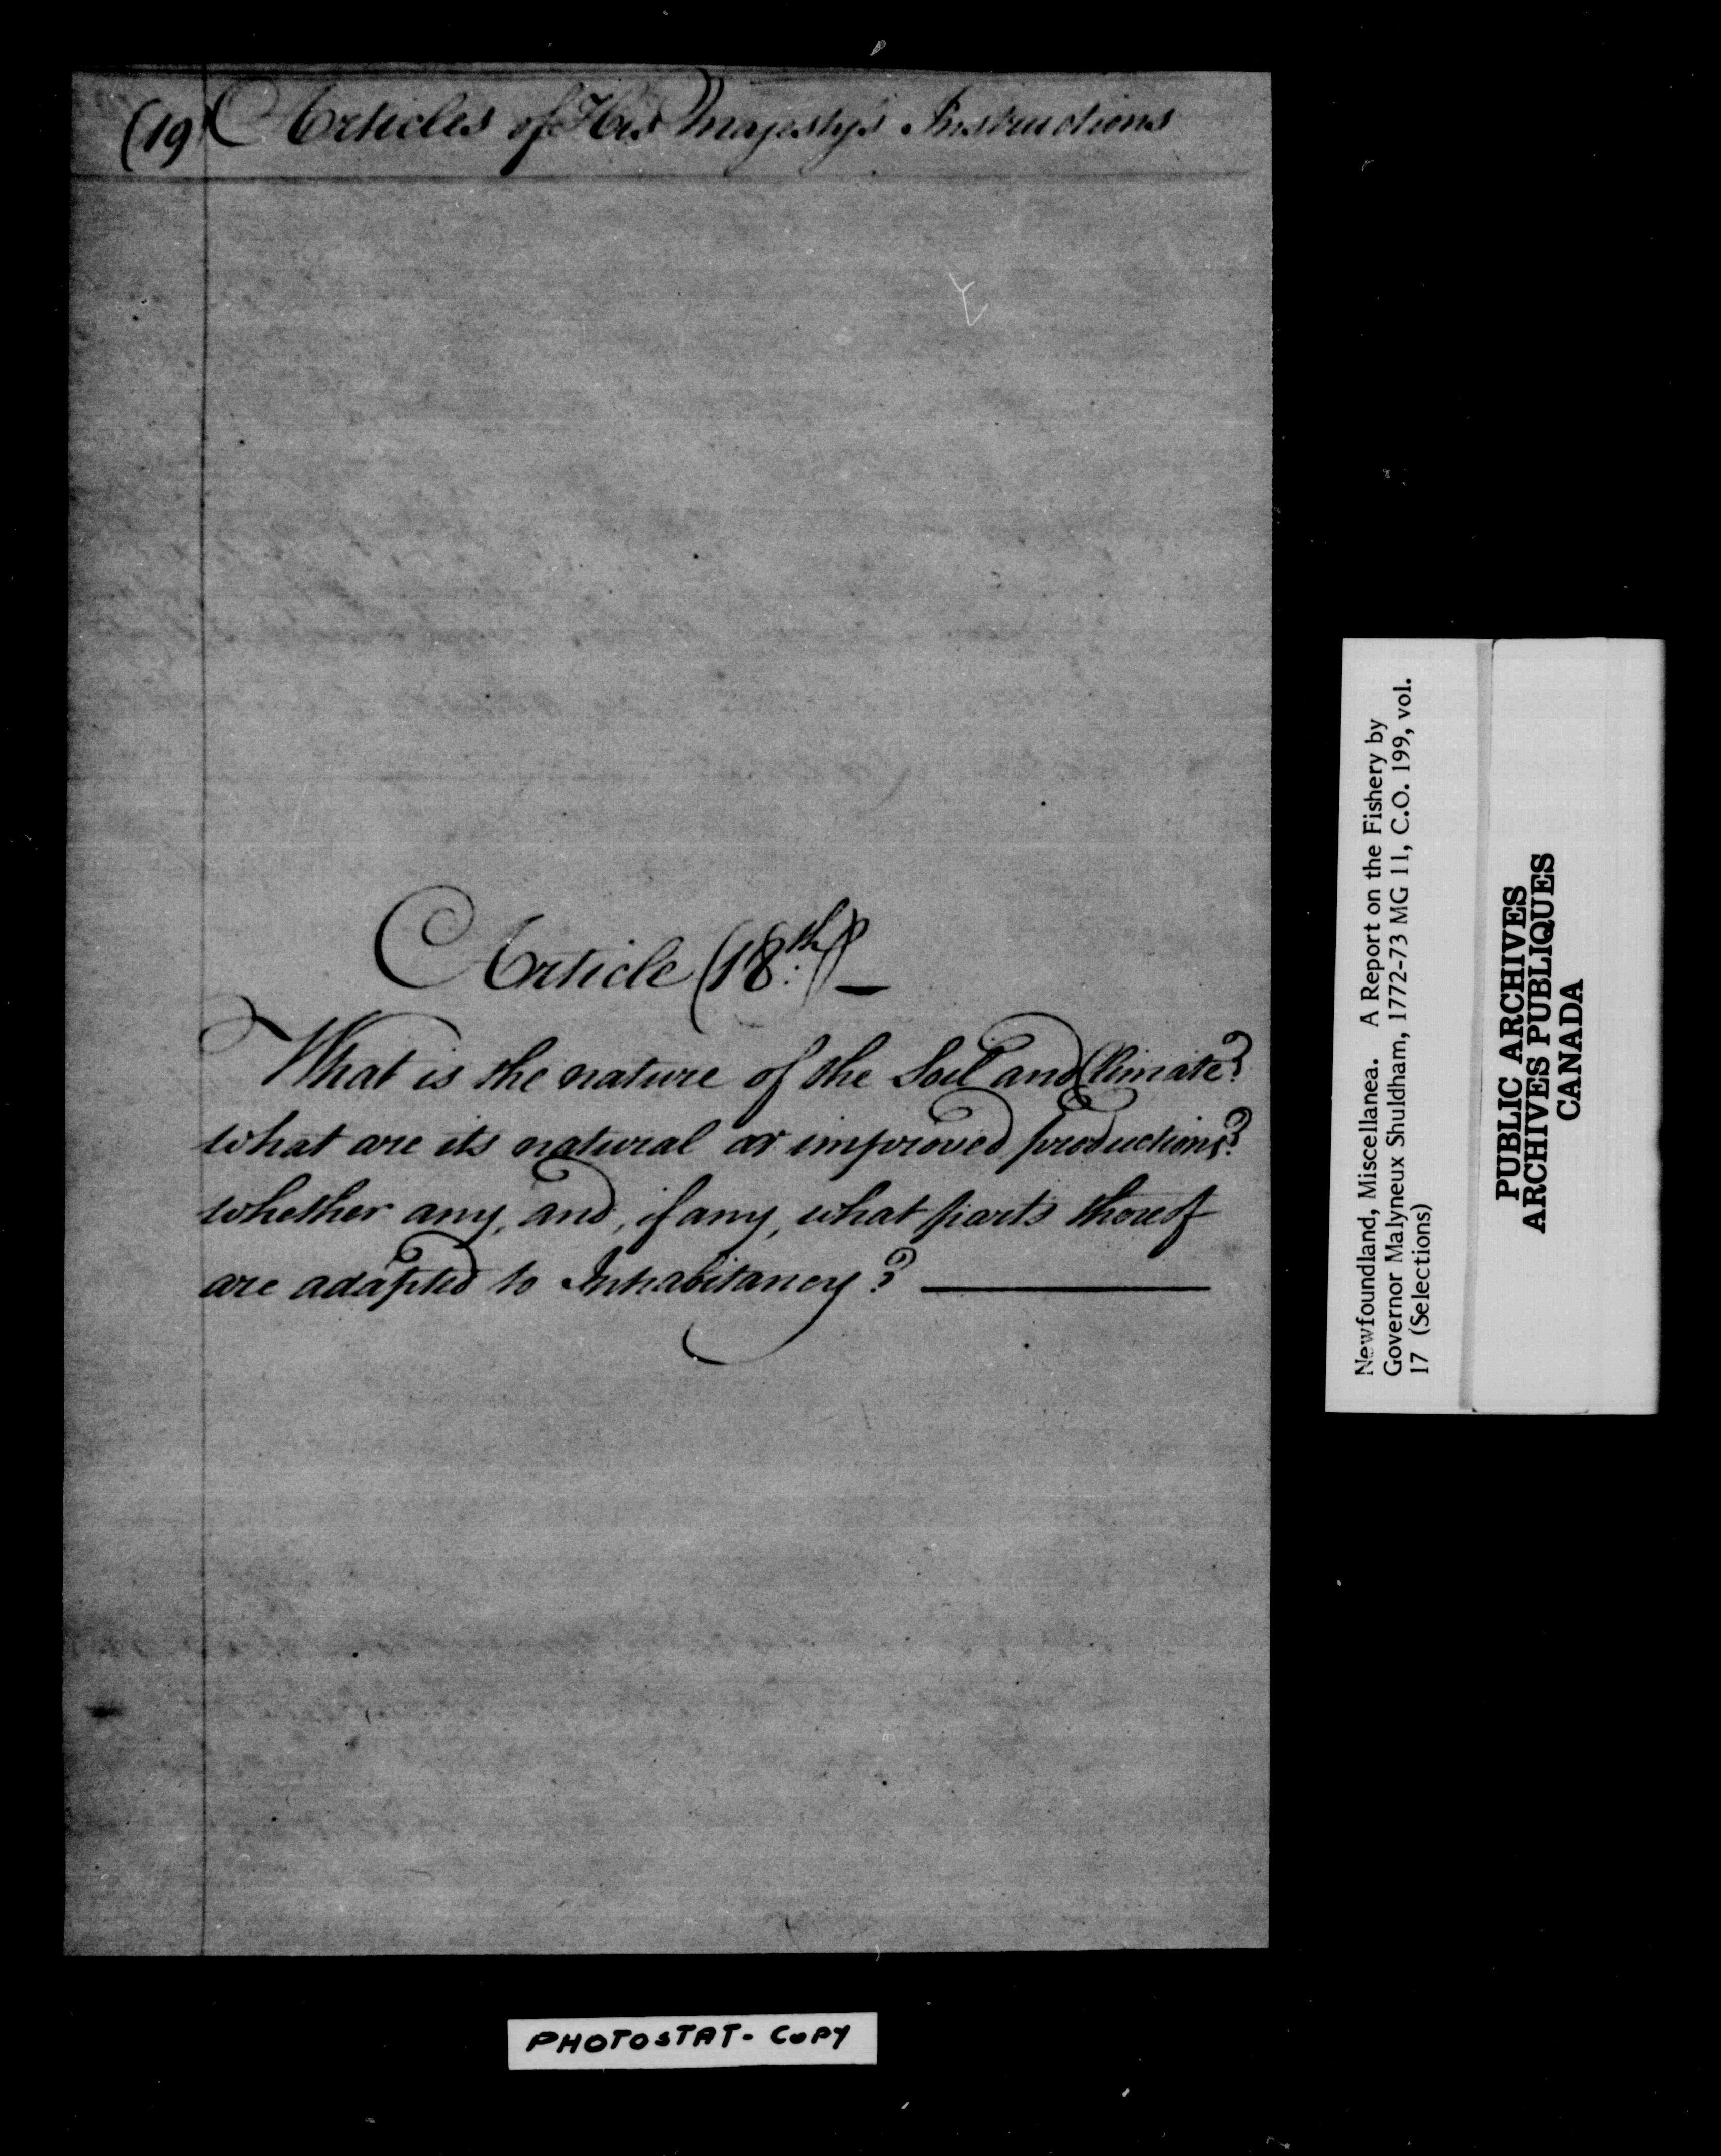 (19) Articles of His Majesty's Instructions
Article (18th)
What is the nature of the Soil and Climate?
what are its natural or improved productions?
whether any, and, if any, what parts thereof
are adapted to Inhabitancy?
Newfoundland, Miscellanea. A Report on the Fishery by
Governor Malyneux Shuldham, 1772-73 MG 11, C.O. 199, vol.
17 (Selections)
PUBLIC ARCHIVES
ARCHIVES PUBLIQUES
CANADA
PHOTOSTAT-COPY